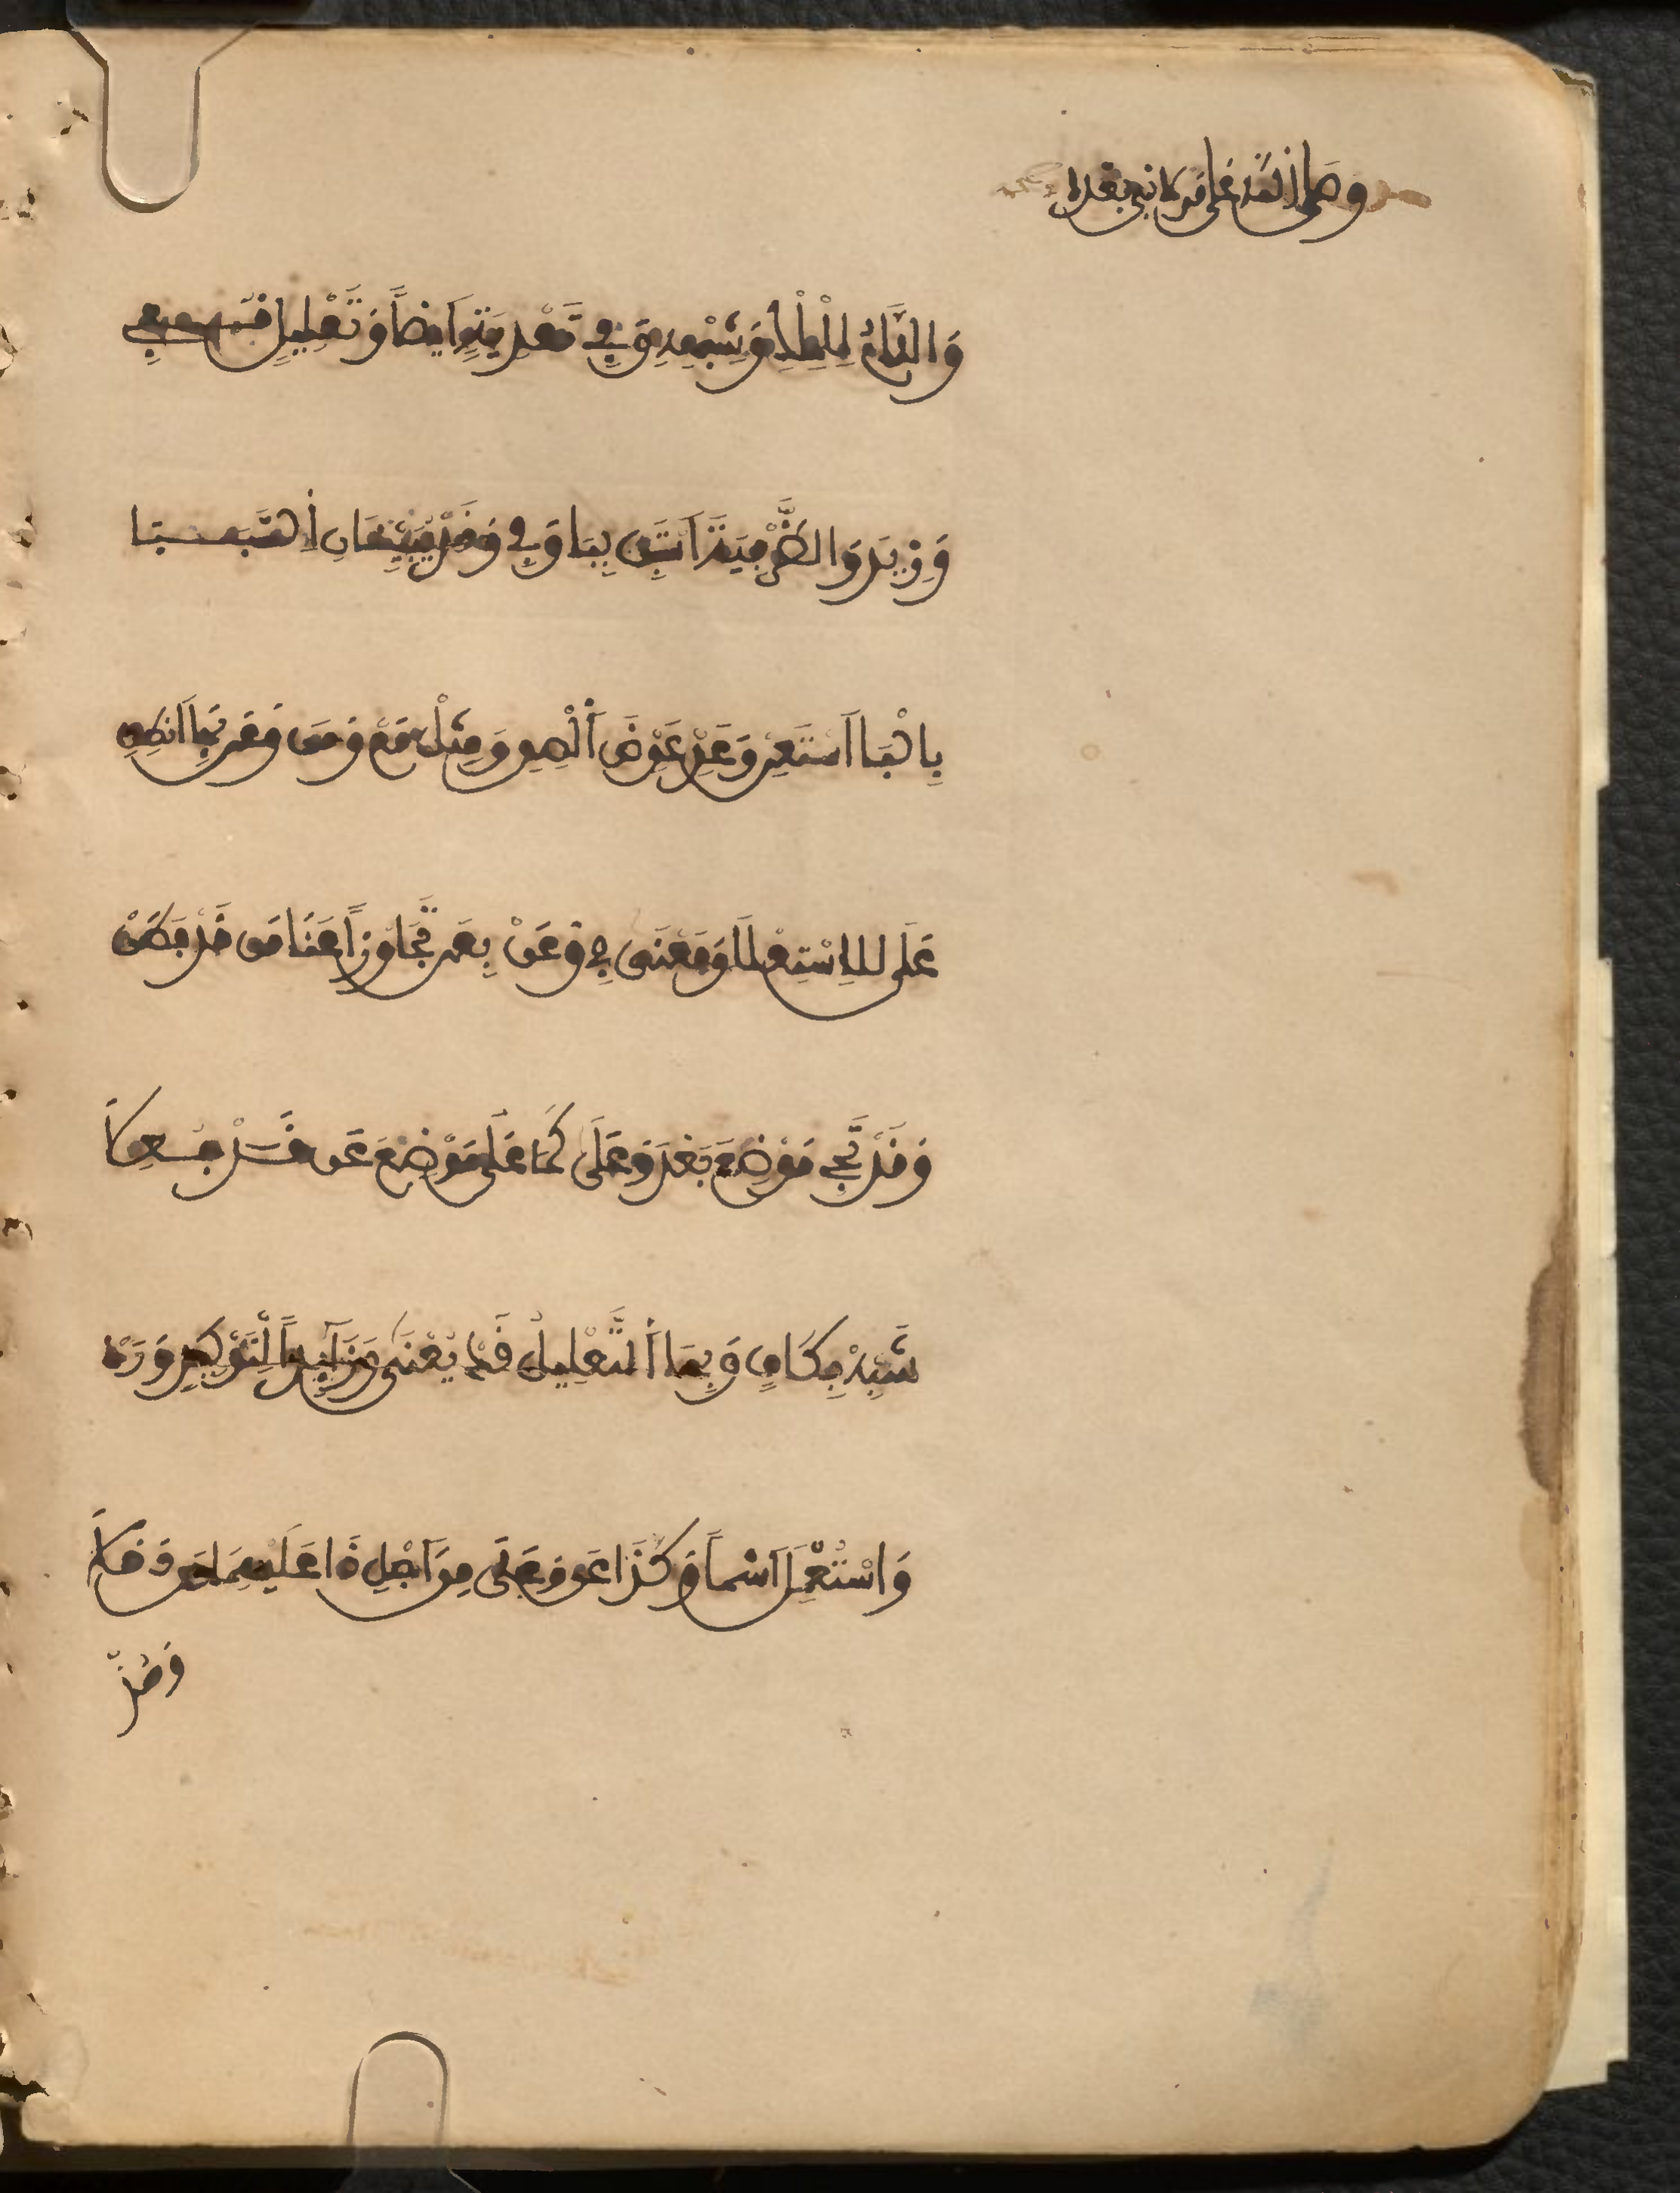 وصلى الله على من لا نبي بعده
وَاللَّامُ لِلْمِلْكِ وَشِبْهِهِ وَفِي تَعْدِيَةٍ أَيْضاً وَتَعْلِيلٍ قُفِي
وَزِيدَ وَالظَّرْفِيَّةَ اَسْتَبِنْ بِبَا وَفِي وَقَدْ يُبَيِّنَانِ اُلسَّبَبَا
بِالْبَا اَسْتَعِنْ وَعَدِّ عَوِّضْ أَلْصِقِ وَمِثْلَ مَعْ وَمِنْ وَعَنْ بِهَا اَنْطِقِ
عَلَى لِلِاسْتِعْلَا وَمَعْنَى فِي وَعَنْ بِعَنْ تَجَاوُزاً عَنَى مَنْ قَدْ فَطَنْ
وَقَدْ تَجِي مَوْضِعَ بَعْدٍ وَعَلَى كَمَا عَلَى مَوْضِعَ عَنْ قَدْ جُعِلَا
شَبِّهْ بِكَافٍ وَبِهَا اُلتَّعْلِيلُ قَدْ يُعْنَى وَزَآئِداً لِتَوْكِيدٍ وَرَدْ
وَاسْتُعْمِلَ اَسْماً وَكَذَا عَنْ وَعَلَى مِنَ اَجْلِ ذَا عَلَيْهِمَا مِنْ دَخَلَا
وَمُذْ